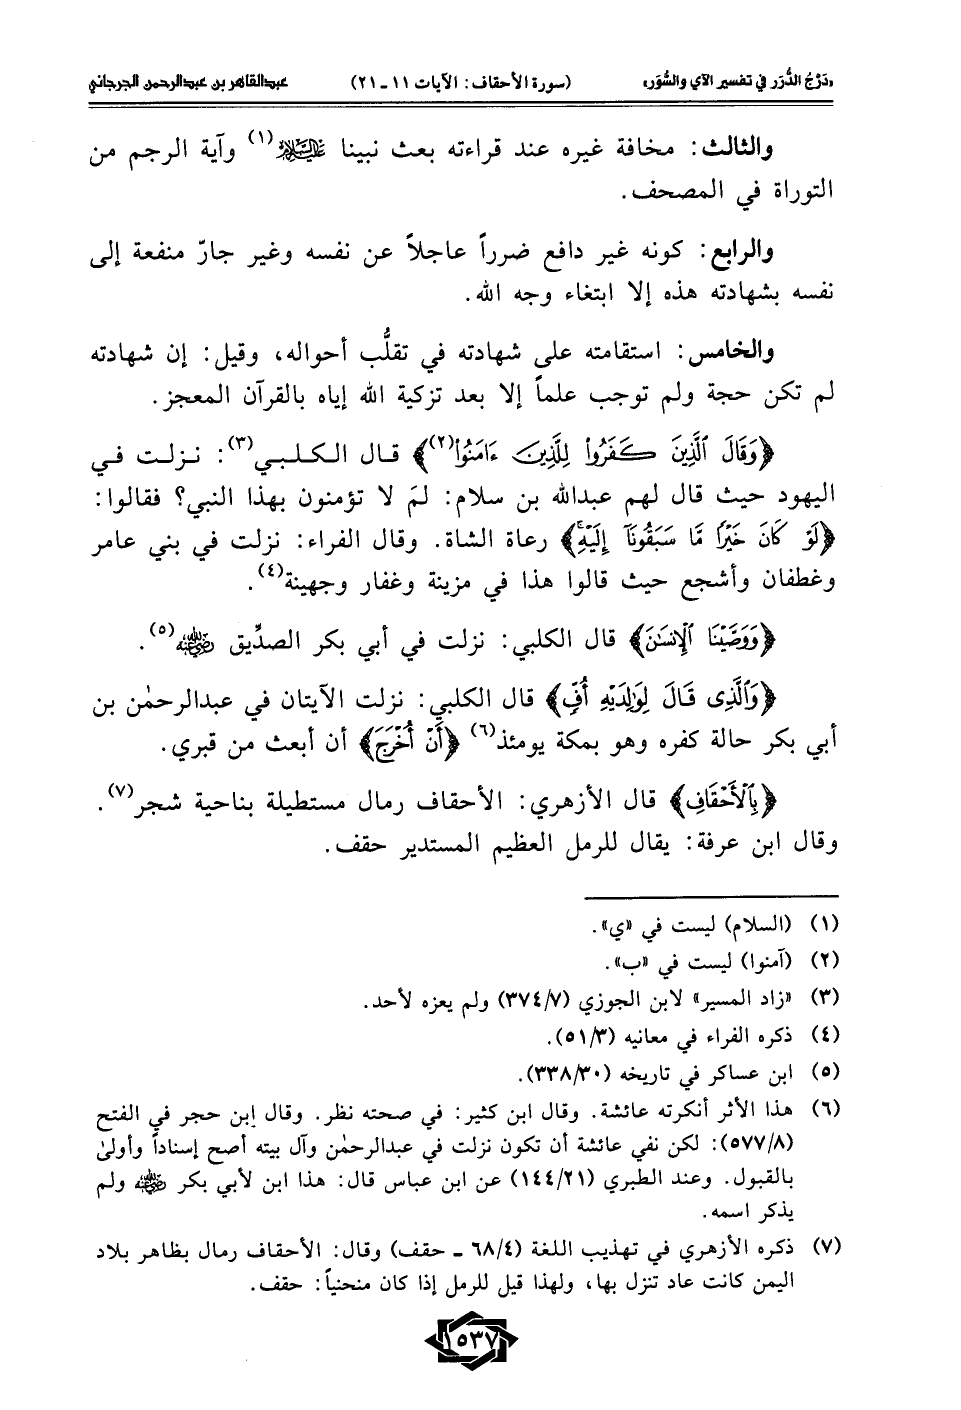 «دَرْجُ الدُّرَر في تفسير الآي والسُّوَر»
(سورة الأحقاف: الآيات ١١ ـ ٢١)
عبدالقاهر بن عبدالرحمن الجرجاني
والثالث: مخافة غيره عند قراءته بعث نبينا عليه السلام(١) وآية الرجم من
التوراة في المصحف.
والرابع: كونه غير دافع ضرراً عاجلاً عن نفسه وغير جارّ منفعة إلى
نفسه بشهادته هذه إلا ابتغاء وجه الله.
والخامس: استقامته على شهادته في تقلُّب أحواله، وقيل: إن شهادته
لم تكن حجة ولم توجب علماً إلا بعد تزكية الله إياه بالقرآن المعجز.
﴿وَقَالَ ٱلَّذِينَ كَفَرُواْ لِلَّذِينَ ءَامَنُواْ(٢)﴾ قال الكلبي(٣): نزلت في
اليهود حيث قال لهم عبدالله بن سلام: لمَ لا تؤمنون بهذا النبي؟ فقالوا:
﴿لَوْ كَانَ خَيْرًا مَّا سَبَقُونَآ إِلَيْهِ﴾ رعاة الشاة. وقال الفراء: نزلت في بني عامر
وغطفان وأشجع حيث قالوا هذا في مزينة وغفار وجهينة(٤).
﴿وَوَصَّيْنَا ٱلْإِنسَٰنَ﴾ قال الكلبي: نزلت في أبي بكر الصدِّيق رضي الله عنه(٥).
﴿وَٱلَّذِى قَالَ لِوَٰلِدَيْهِ أُفٍّ﴾ قال الكلبي: نزلت الآيتان في عبدالرحمٰن بن
أبي بكر حالة كفره وهو بمكة يومئذ(٦) ﴿أَنْ أُخْرَجَ﴾ أن أبعث من قبري.
﴿بِٱلْأَحْقَافِ﴾ قال الأزهري: الأحقاف رمال مستطيلة بناحية شجر(٧).
وقال ابن عرفة: يقال للرمل العظيم المستدير حقف.
(١) (السلام) ليست في «ي».
(٢) (آمنوا) ليست في «ب».
(٣) «زاد المسير» لابن الجوزي (٣٧٤/٧) ولم يعزه لأحد.
(٤) ذكره الفراء في معانيه (٥١/٣).
(٥) ابن عساكر في تاريخه (٣٣٨/٣٠).
(٦) هذا الأثر أنكرته عائشة. وقال ابن كثير: في صحته نظر. وقال إبن حجر في الفتح
(٥٧٧/٨): لكن نفي عائشة أن تكون نزلت في عبدالرحمٰن وآل بيته أصح إسناداً وأولىٰ
بالقبول. وعند الطبري (١٤٤/٢١) عن ابن عباس قال: هذا ابن لأبي بكر رضي الله عنه ولم
يذكر اسمه.
(٧) ذكره الأزهري في تهذيب اللغة (٦٨/٤ ـ حقف) وقال: الأحقاف رمال بظاهر بلاد
اليمن كانت عاد تنزل بها، ولهذا قيل للرمل إذا كان منحنياً: حقف.
١٥٣٧